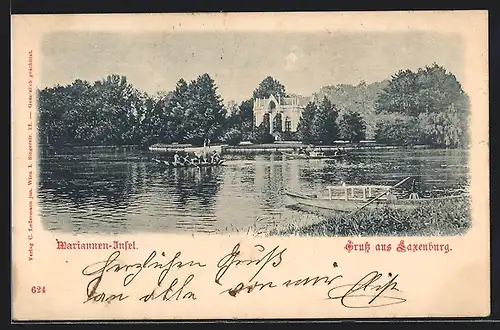 Verlag C. Ledermann jun. Wien I. Singerstr. 12. — Gesetzlich geschützt.
Mariannen-Insel.
Gruß aus Laxenburg.
624
Herzlichen Gruß
an alle von mir